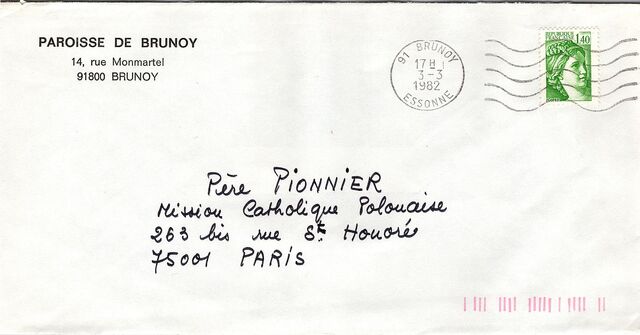 PAROISSE DE BRUNOY
14, rue Monmartel
91800 BRUNOY
91 BRUNOY
17 H
3-3
1982
ESSONNE
1,40
Père PIONNIER
Mission Catholique Polonaise
263 bis rue St Honorée
75001 PARIS